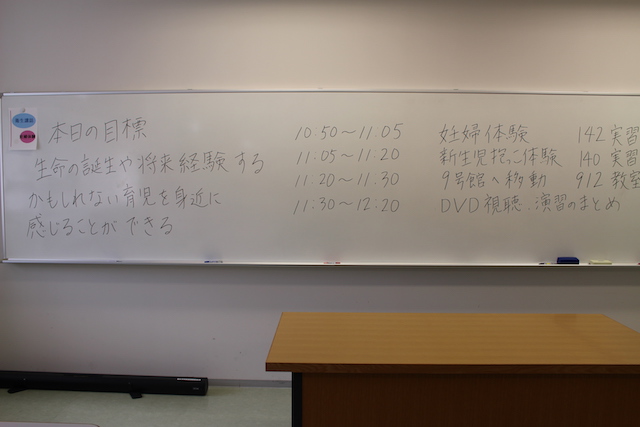 本日の目標
生命の誕生や将来経験する
かもしれない育児を身近に
感じることができる
10:50〜11:05 妊婦体験 142 実習
11:05〜11:20 新生児抱っこ体験 140 実習
11:20〜11:30 9号館へ移動 912 教室
11:30〜12:20 DVD視聴、演習のまとめ